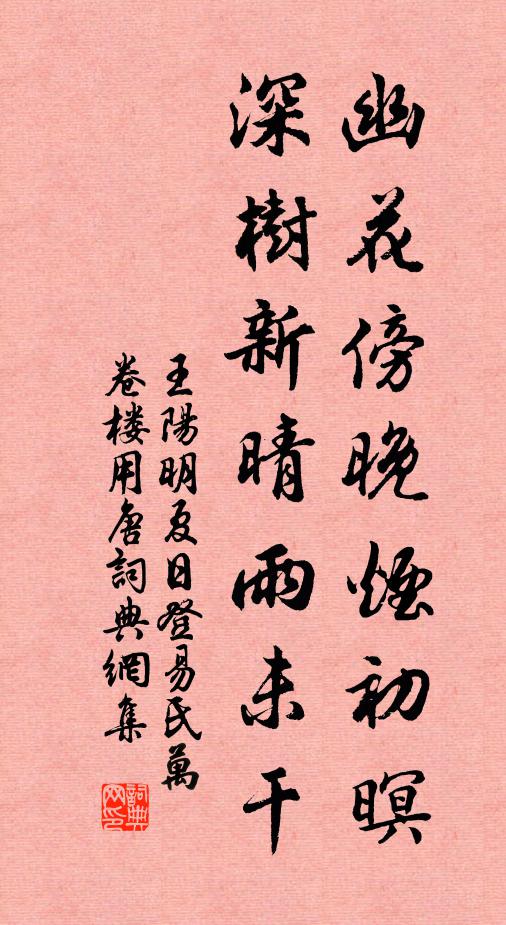 幽花傍晚煙初暝
深樹新晴雨未干
王陽明夏日登易氏萬
卷楼用唐詞典網集
詞典
网印